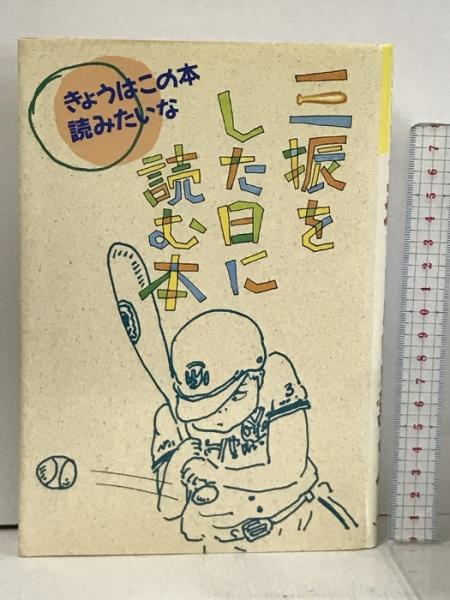 きょうはこの本
読みたいな
三振を
した日に
読む本
3